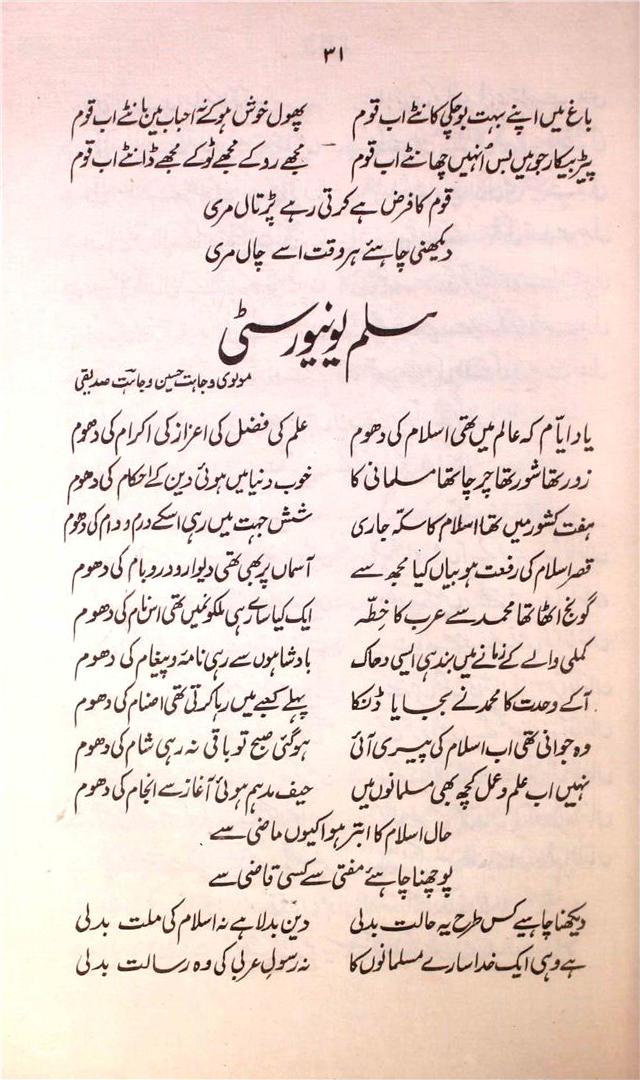 ۳۱
باغ میں اپنے بہت بو چکی کانٹے اب قوم پھول خوش ہو کے یہ احباب میں بانٹے اب قوم
پیڑ بیکار جو ہیں بس اُنہیں چھانٹے اب قوم مجھے رد کے مجھے ٹوکے مجھے ڈانٹے اب قوم
قوم کا فرض ہے کرتی رہے پڑتال مری
دیکھنی چاہئے ہر وقت اسے چال مری
مسلم یونیورسٹی
مولوی وجاہت حسین وجاہت صدیقی
یاد ایّام کہ عالم میں تھی اسلام کی دھوم علم کی فضل کی اعزاز کی اکرام کی دھوم
زور تھا شور تھا چرچا تھا مسلمانی کا خوب دنیا میں ہوئی دین کے احکام کی دھوم
ہفت کشور میں تھا اسلام کا سکّہ جاری شش جہت میں رہی اسکے درم و دام کی دھوم
قصر اسلام کی رفعت ہو بیاں کیا مجھ سے آسماں پر بھی تھی دیوار و در و بام کی دھوم
گونج اٹھا تھا محمد سے عرب کا خطّہ ایک کیا سارے ہی ملکوں میں تھی اس نام کی دھوم
کملی والے کے زمانے میں بندھی ایسی دھاک بادشاہوں سے رہی نامہ و پیغام کی دھوم
آ کے وحدت کا محمد نے بجایا ڈنکا پہلے کعبے میں رہا کرتی تھی اصنام کی دھوم
وہ جوانی تھی اب اسلام کی پیری آئی ہو گئی صبح تو باقی نہ رہی شام کی دھوم
نہیں اب علم و عمل کچھ بھی مسلمانوں میں حیف مدہم ہوئی آغاز سے انجام کی دھوم
حال اسلام کا ابتر ہوا کیوں ماضی سے
پوچھنا چاہئے مفتی سے کسی قاضی سے
دیکھنا چاہیے کس طرح یہ حالت بدلی دین بدلا ہے نہ اسلام کی ملت بدلی
ہے وہی ایک خدا سارے مسلمانوں کا نہ رسول عربی کی وہ رسالت بدلی